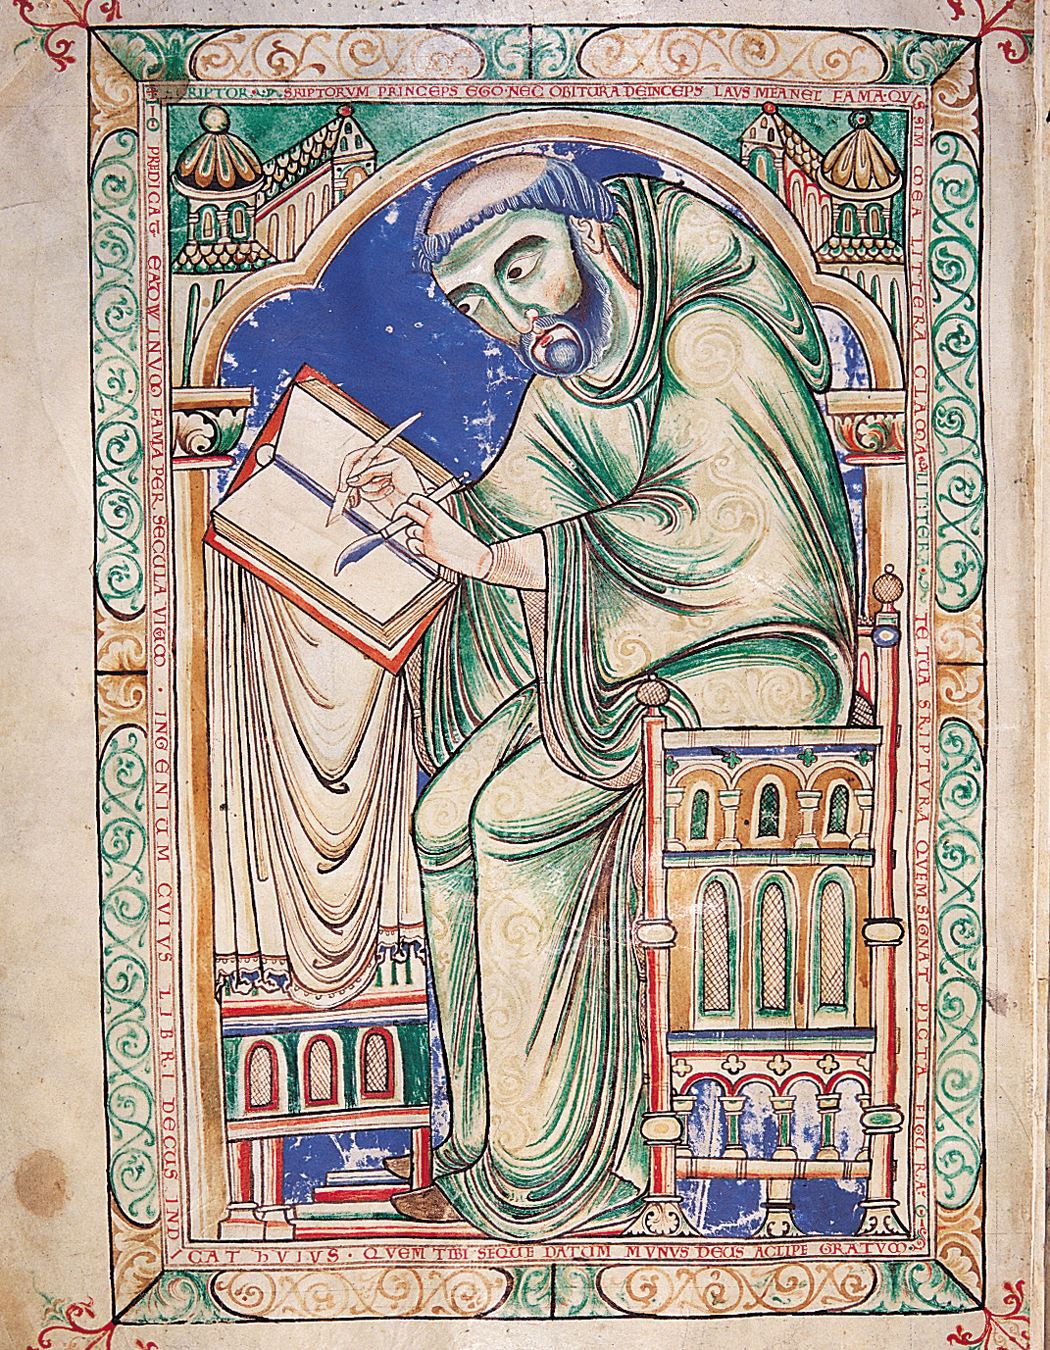 SRIPTORVM PRINCEPS EGO· NEC OBITURA DEINCEPS LAVS MEA NEC FAMA· QVI
SIM MEA LITTERA CLAMA· LITTER· TE TUA SRIPTVRA QVEM SIGNAT PICTA FIGURA·
PREDICAT· EADWINVM FAMA PER SECULA VIVVM · INGENIUM CVIVS LIBRI DECUS INDI
CAT hVIVS · QVEM TIBI SEQUE DATVM MVNVS DEUS ACCIPE GRATVM·